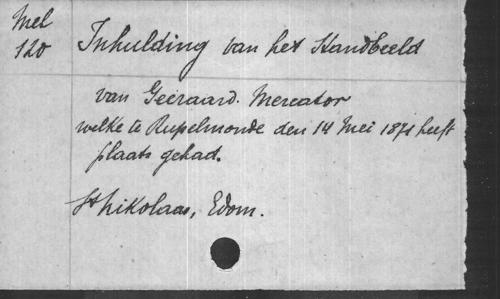 Mel
120
Inhulding van het Standbeeld
van Geeraard Mercator
welke te Rupelmonde den 14 Mei 1871 heeft
plaats gehad.
St Nikolaas, Edom.